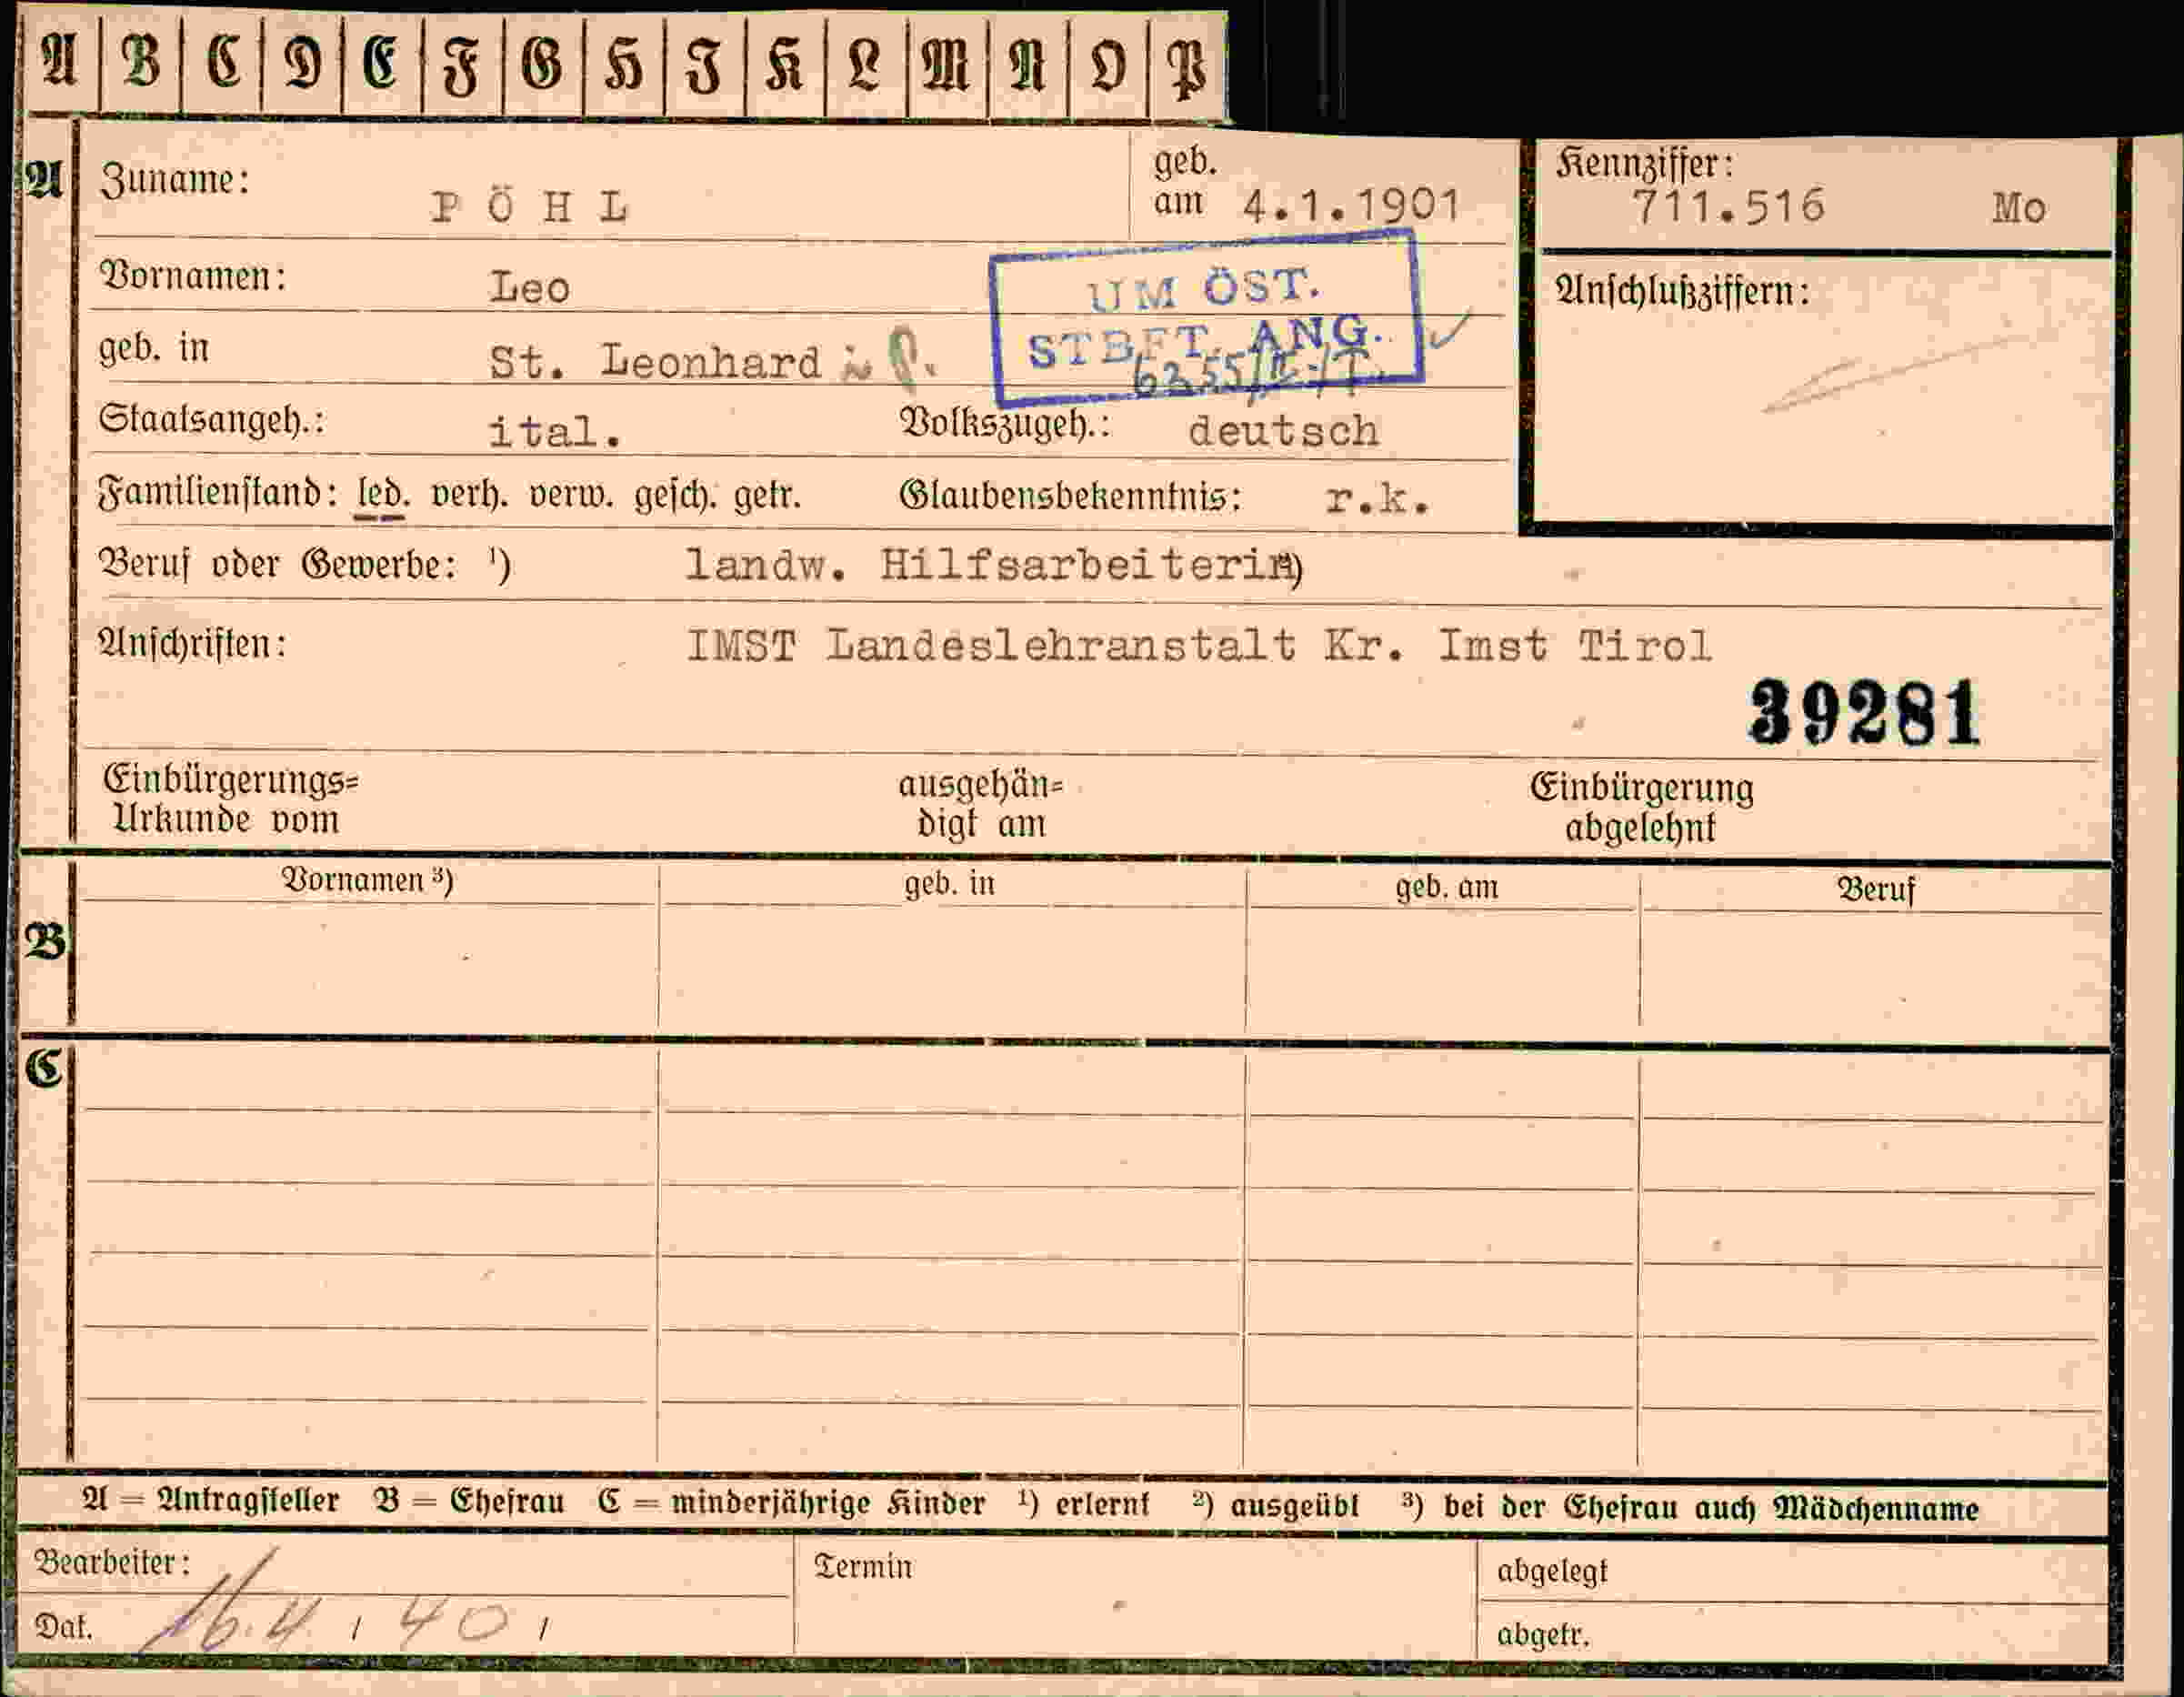 A B C D E F G H I K L M N O P
A Zuname: PÖHL geb. am 4.1.1901 Kennziffer: 711.516 Mo
Vornamen: Leo
UM ÖST. STBFT. ANG.
Anschlußziffern:
geb. in St. Leonhard i. P.
6355/II-/T.
Staatsangeh.: ital. Volkszugeh.: deutsch
Familienstand: led. verh. verw. gesch. getr. Glaubensbekenntnis: r.k.
Beruf oder Gewerbe: ¹) landw. Hilfsarbeiterin)
Anschriften: IMST Landeslehranstalt Kr. Imst Tirol
39281
Einbürgerungs=
Urkunde vom
ausgehän=
digt am
Einbürgerung
abgelehnt
B Vornamen ³) geb. in geb. am Beruf
C
A = Antragsteller B = Ehefrau C = minderjährige Kinder ¹) erlernt ²) ausgeübt ³) bei der Ehefrau auch Mädchenname
Bearbeiter: Termin abgelegt
Dat. 16.4. 40 abgetr.